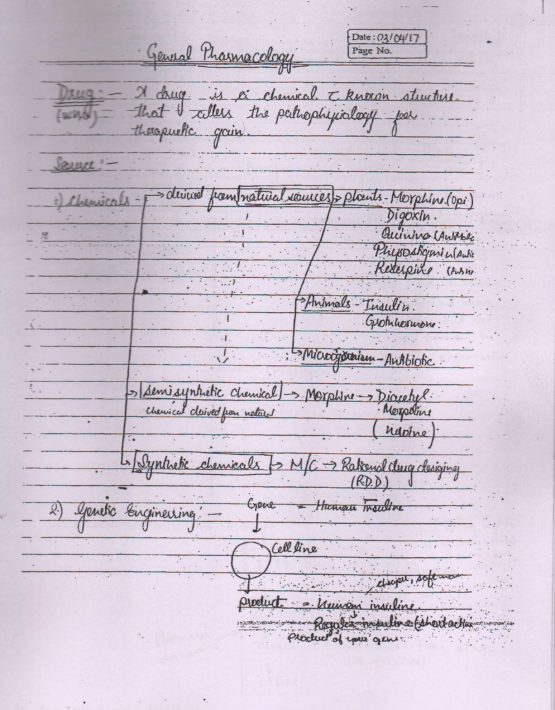 Date: 03/04/17
Page No.
General Pharmacology
Drug:- A drug is a chemical c̄ known structure
(WHO) that alters the pathophysiology for
therapuetic gain.
Source:-
1) Chemicals - → derived from natural sources → plants - Morphine (Opi)
Digoxin.
Quinine
Physostigmin
Reserpine
→ Animals - Insulin.
Growthhormone.
→ Microorganism - Antibiotic.
→ Semisynthetic chemical → Morphine → Diacetyl
chemical derived from natural Morphine
→ Synthetic chemicals → M/C → Rational drug desiging
(RDD)
2) Genetic Engineering:- Gene = Human insuline
Cell line
cheaper,
product = Human insuline.
Regular insuline (short active
product of your gene.